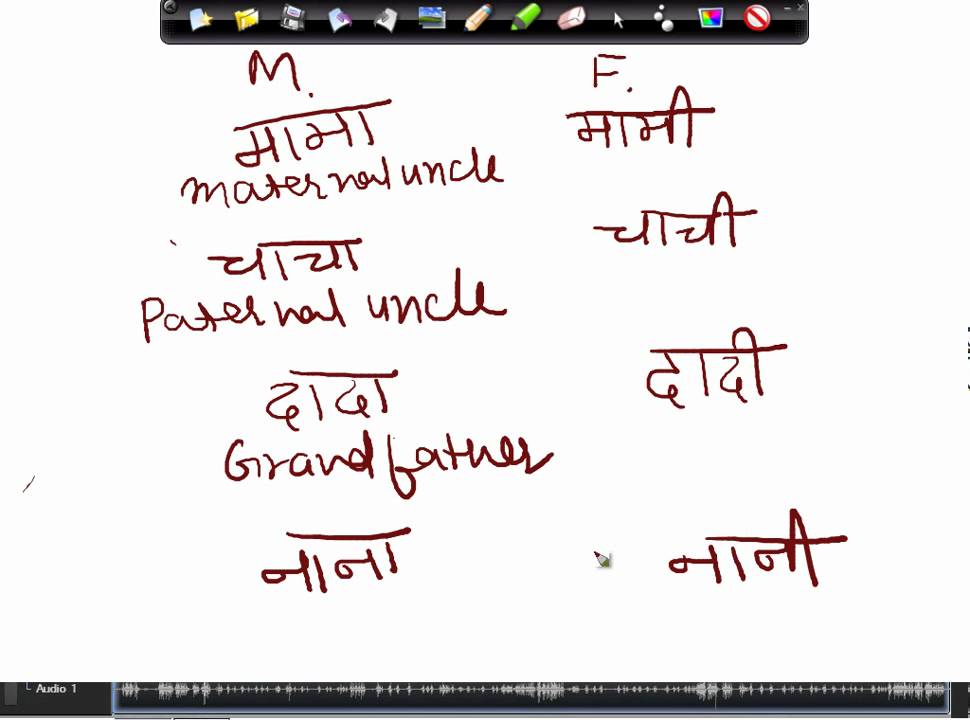 M. F.
मामा मामी
maternal uncle
चाचा चाची
Paternal uncle
दादा दादी
Grandfather
नाना नानी
Audio 1